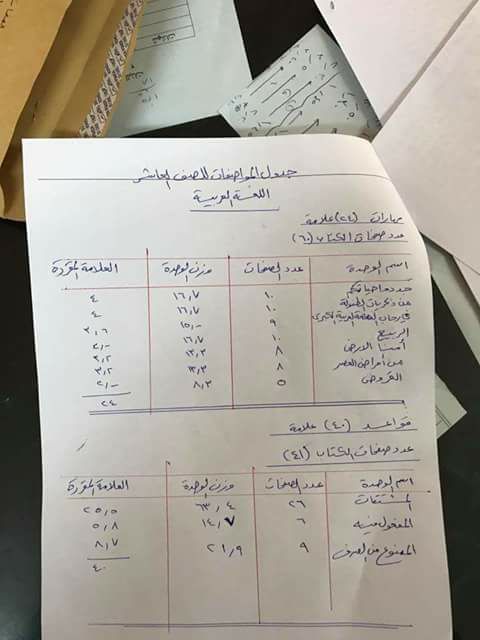 جدول المواصفات للصف العاشر
اللغة العربية
مهارات (٢٤) علامة
عدد صفحات الكتاب (٦٠)
اسم الوحدة عدد الصفحات وزن الوحدة العلامة المقررة
١٠ ١٦,٧ ٤
من ذكريات الطفولة ١٠ ١٦,٧ ٤
العربية الكبرى ٩ ١٥,٠ ٣,٦
الربيع ١٠ ١٦,٧
أمنا الأرض ٨ ١٣,٣ ٣,٢
من أمراض العصر ٨ ١٣,٣ ٣,٢
العروض ٥ ٨,٣ ٢,٠
٢٤
قواعد (٤٠) علامة
عدد صفحات الكتاب (٤١)
اسم الوحدة عدد الصفحات وزن الوحدة العلامة المقررة
المشتقات ٢٦ ٦٣,٤ ٢٥,٥
المفعول فيه ٦ ١٤,٧ ٥,٨
الممنوع من الصرف ٩ ٢١,٩ ٨,٧
٤٠